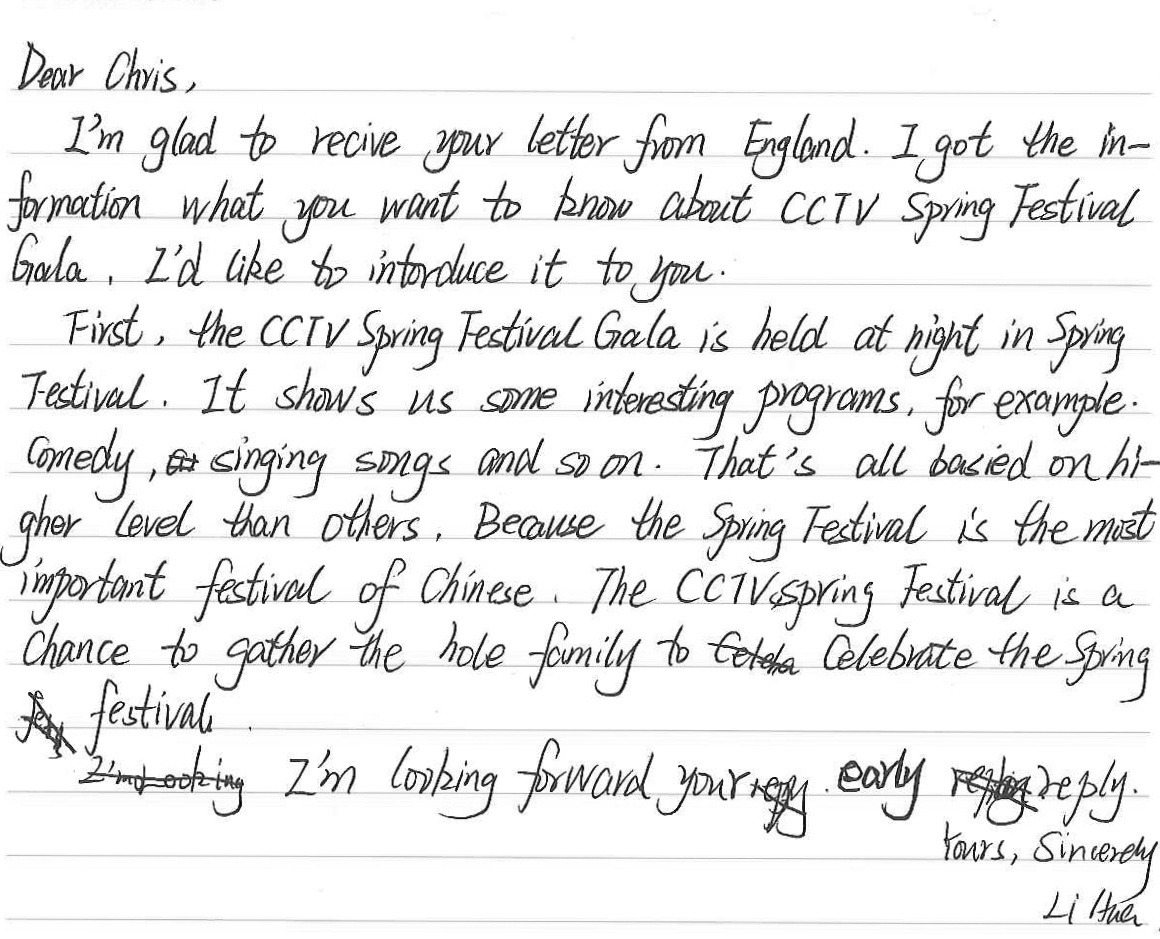 Dear Chris,
I'm glad to recive your letter from England. I got the in-
formation what you want to know about CCTV Spring Festival
Gala, I'd like to intorduce it to you.
First, the CCTV Spring Festival Gala is held at night in Spring
Festival. It shows us some interesting programs, for example.
Comedy, singing songs and so on. That's all basied on hi-
gher level than others, Because the Spring Festival is the most
important festival of Chinese. The CCTV spring Festival is a
Chance to gather the hole family to Celebrate the Spring
festival.
I'm looking forward your early reply.
Yours, Sincerely
Li Hua